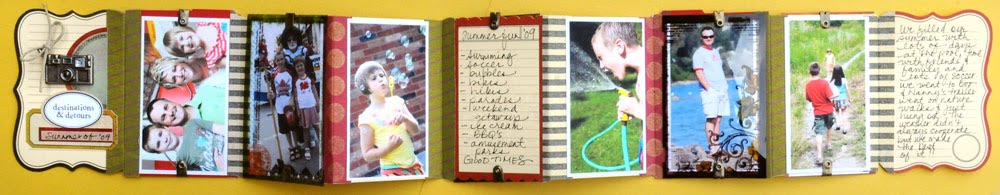 destinations
& detours
Summer of '09
Summer fun '09
- swimming
- soccer
- bubbles
- bikes
- hikes
- parades
- weekend
getaways
- ice cream
- BBQ's
- amusement
parks
GOOD TIMES
We filled our
summer with
lots of days
at the pool, time
with friends &
family and
lots of soccer
we went to
& Nanny's trailer
went on nature
walks & just
hung out. The
weather didn't
always cooperate
but we made
the best
of it!